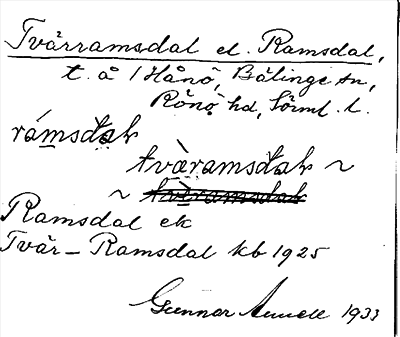 Tvärramsdal el. Ramsdal,
t. å 1 Hånö, Bälinge sn,
Rönö hd, Sörml. l.
rámsdak
tvàramsdak ~
~ tvèramsdak
Ramsdal ek
Tvär – Ramsdal kb 1925
Gunnar 1933